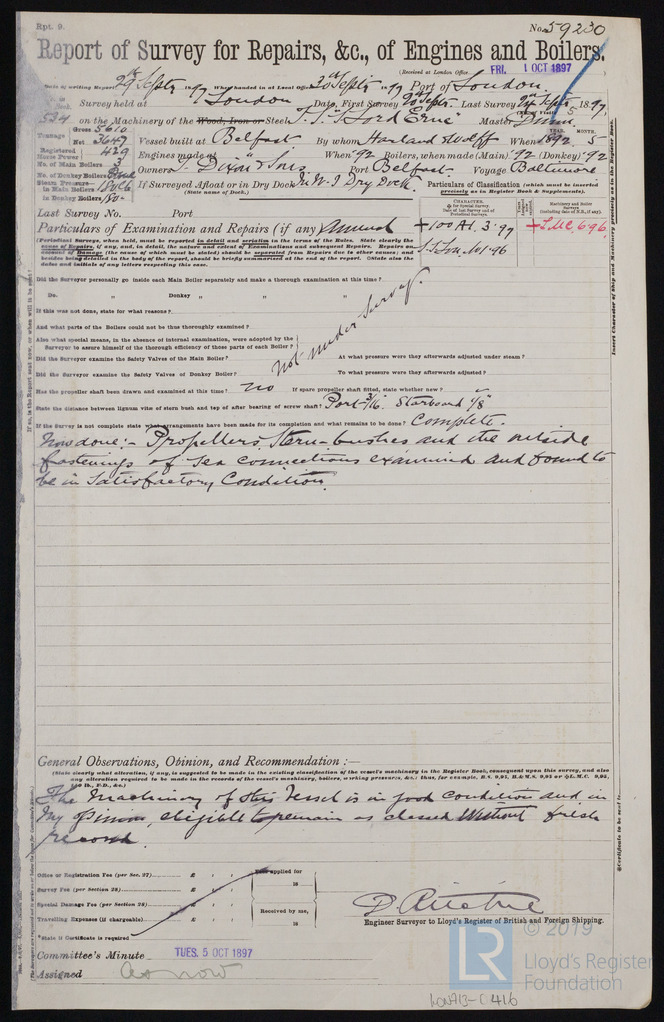 Rpt. 9.
No. 59230
Report of Survey for Repairs, &c., of Engines and Boilers.
(Received at London Office FRI. 1 OCT 1897
Date of writing Report 29th Septr 1897 When handed in at Local Office 30th Septr 1897 Port of London.
Survey held at London Date, First Survey Last Survey Septr 1897
534 on the Machinery of the Wood, Iron or Steel T.S.S. "Lord Erne" Master
Tonnage Gross 5610 Net 3647
Vessel built at Belfast By whom Harland & Wolff When 1892 MONTH. 5
Registered Horse Power 429
Engines made at When '92 Boilers, when made (Main) '92 (Donkey) '92
No. of Main Boilers 3
Owners T. Dixon & Sons Port Belfast Voyage Baltimore
No. of Donkey Boilers
Steam Pressure in Main Boilers 180 lb
in Donkey Boilers
If Surveyed Afloat or in Dry Dock W. I. Dry Dock.
(State name of Dock.)
Particulars of Classification (which must be inserted precisely as in Register Book & Supplements).
Last Survey No. Port
Particulars of Examination and Repairs (if any) Annual
+100A1. 3.97
S.S. Lon. No1-96
+LMC 6.96
(Periodical Surveys, when held, must be reported in detail and seriatim in the terms of the Rules. State clearly the
causes of Repairs, if any, and, in detail, the nature and extent of Examinations and subsequent Repairs. Repairs on
account of Damage (the cause of which must be stated) should be separated from Repairs due to other causes; and
besides being detailed in the body of the report, should be briefly summarised at the end of the report. State also the
dates and initials of any letters respecting this case.
Did the Surveyor personally go inside each Main Boiler separately and make a thorough examination at this time?
Do. " Donkey " " "
If this was not done, state for what reasons?
And what parts of the Boilers could not be thus thoroughly examined?
Also what special means, in the absence of internal examination, were adopted by the
Surveyor to assure himself of the thorough efficiency of those parts of each Boiler?
not under Survey.
Did the Surveyor examine the Safety Valves of the Main Boiler? At what pressure were they afterwards adjusted under steam?
Did the Surveyor examine the Safety Valves of Donkey Boiler? To what pressure were they afterwards adjusted?
Has the propeller shaft been drawn and examined at this time? No If spare propeller shaft fitted, state whether new?
State the distance between lignum vitæ of stern bush and top of after bearing of screw shaft? Port 3/16" Starboard 1/8"
If the Survey is not complete state what arrangements have been made for its completion and what remains to be done? Complete.
Now done:- Propellers, Stern-bushes and the outside
fastenings of sea connections examined and found to
be in satisfactory condition.
General Observations, Opinion, and Recommendation :—
(State clearly what alteration, if any, is suggested to be made in the existing classification of the vessel's machinery in the Register Book, consequent upon this survey, and also
any alteration required to be made in the records of the vessel's machinery, boilers, working pressures, &c.: thus, for example, B.S. 9,95, B.& M.S. 9,95 or +L.M.C. 9,95,
The Machinery of this Vessel is in good condition and in
my opinion, eligible to remain as classed without fresh
record.
Office or Registration Fee (per Sec. 27) £ : :
Survey Fee (per Section 28) £ : :
Special Damage Fee (per Section 28) £ : :
Travelling Expenses (if chargeable) £ : :
Fees applied for
18
Received by me,
18
*State if Certificate is required
Engineer Surveyor to Lloyd's Register of British and Foreign Shipping.
Committee's Minute TUES. 5 OCT 1897
Assigned as now
© 2019
LR
Lloyd's Register
Foundation
LON713-0416